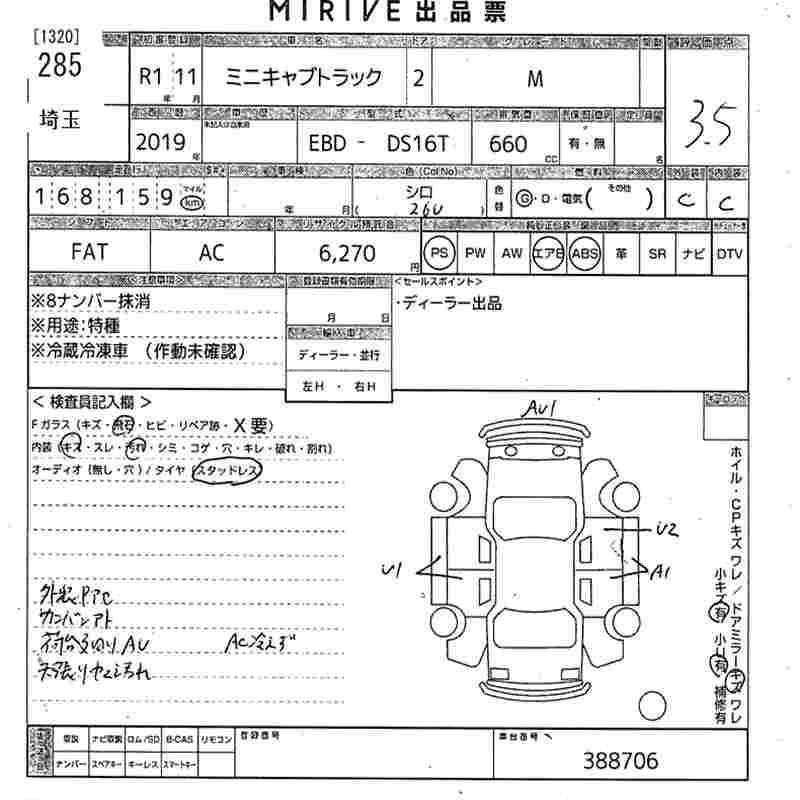 MIRIVE 出品票
[1320]
285
埼玉
初度登録 車名 ドア グレード 評価点
R1 11 ミニキャブトラック 2 M
年 月
3.5
車歴 型式 排気量
2019 年
EBD - DS16T 660 CC 有・無 名
走行 車検 色(Col No) 燃料 外装 内装
168,159 マイル km 年 月 シロ 色替 G・D・電気( その他 ) C C
( 26U )
シフト エアコン リサイクル預託金
FAT AC 6,270 円 PS PW AW エアB ABS 革 SR ナビ DTV
<注意事項> 登録書類有効期限 <セールスポイント>
※8ナンバー抹消 月 日 ・ディーラー出品
※用途:特種 輸入車
※冷蔵冷凍車 (作動未確認) ディーラー・並行
左H ・ 右H
< 検査員記入欄 >
Fガラス (キズ・飛石・ヒビ・リペア跡・X要)
内装 (キズ・スレ・汚れ・シミ・コゲ・穴・キレ・破れ・割れ)
オーディオ (無し・穴) / タイヤ (スタッドレス)
AU1
U2
U1
A1
外装PアC
カンバンアト
荷台AU AC冷えず
天張り汚れ
ホイル・CPキズ ワレ / ドアミラーキズ ワレ
小キズ有 小U有 補修有
取説 ナビ取説 ロム/SD B-CAS リモコン 登録番号 車台番号
ナンバー スペアキー キーレス スマートキー
388706